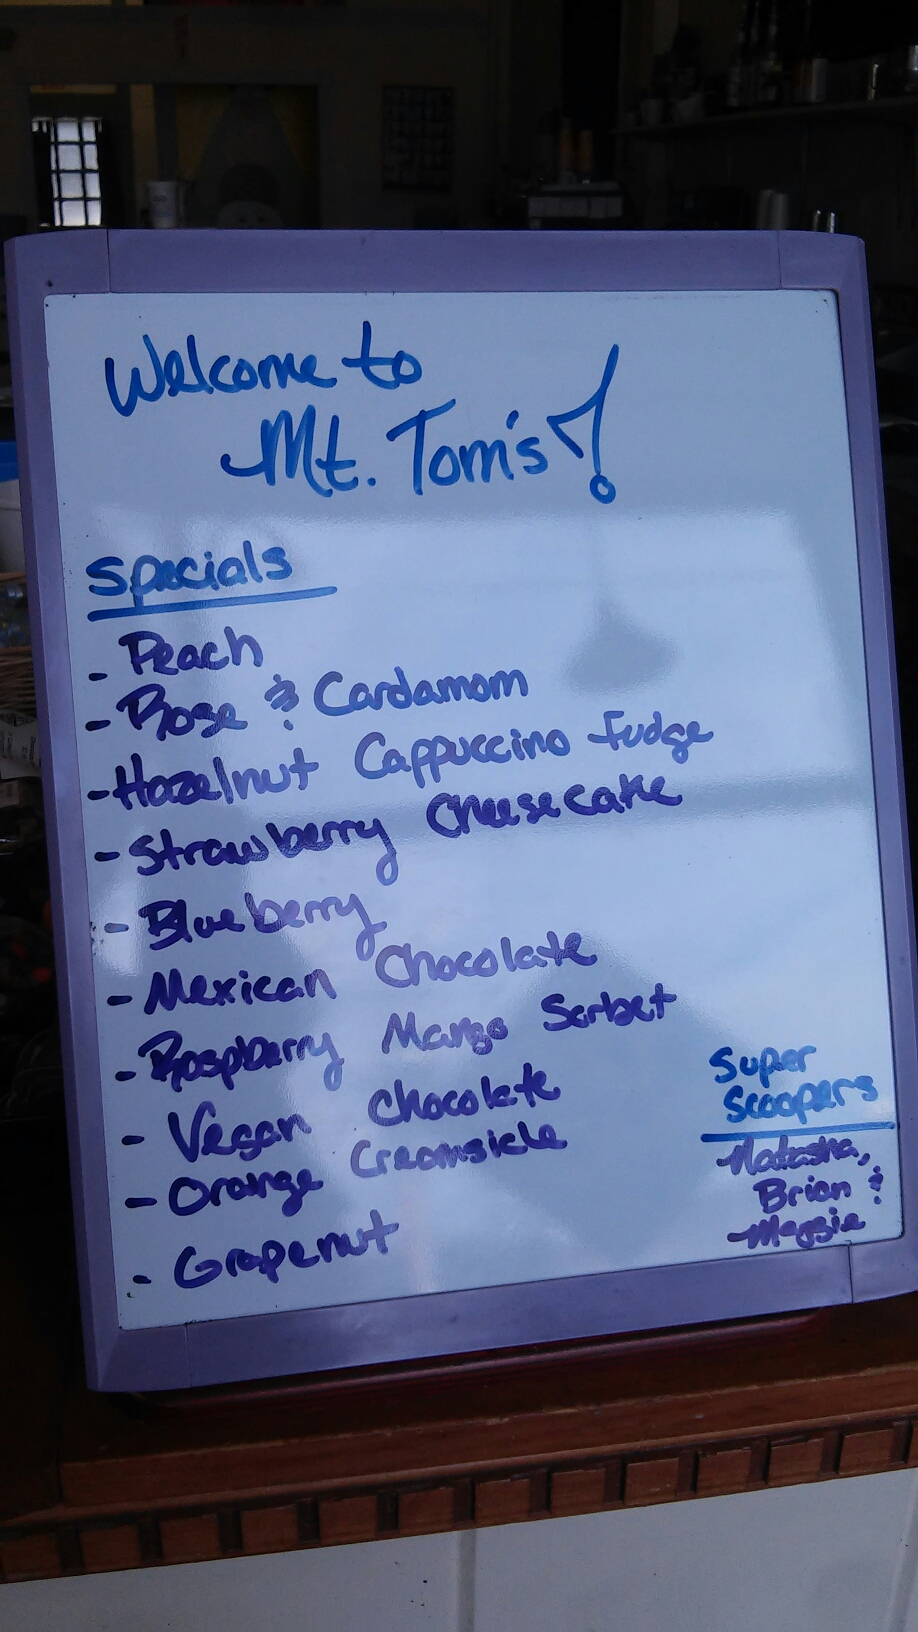 Welcome to
Mt. Tom's!
Specials
- Peach
- Rose & Cardamom
- Hazelnut Cappuccino Fudge
- Strawberry Cheesecake
- Blueberry
- Mexican Chocolate
- Raspberry Mango Sorbet
- Vegan Chocolate
- Orange Creamsicle
- Grapenut
Super
Scoopers
Natasha,
Brian &
Maggie